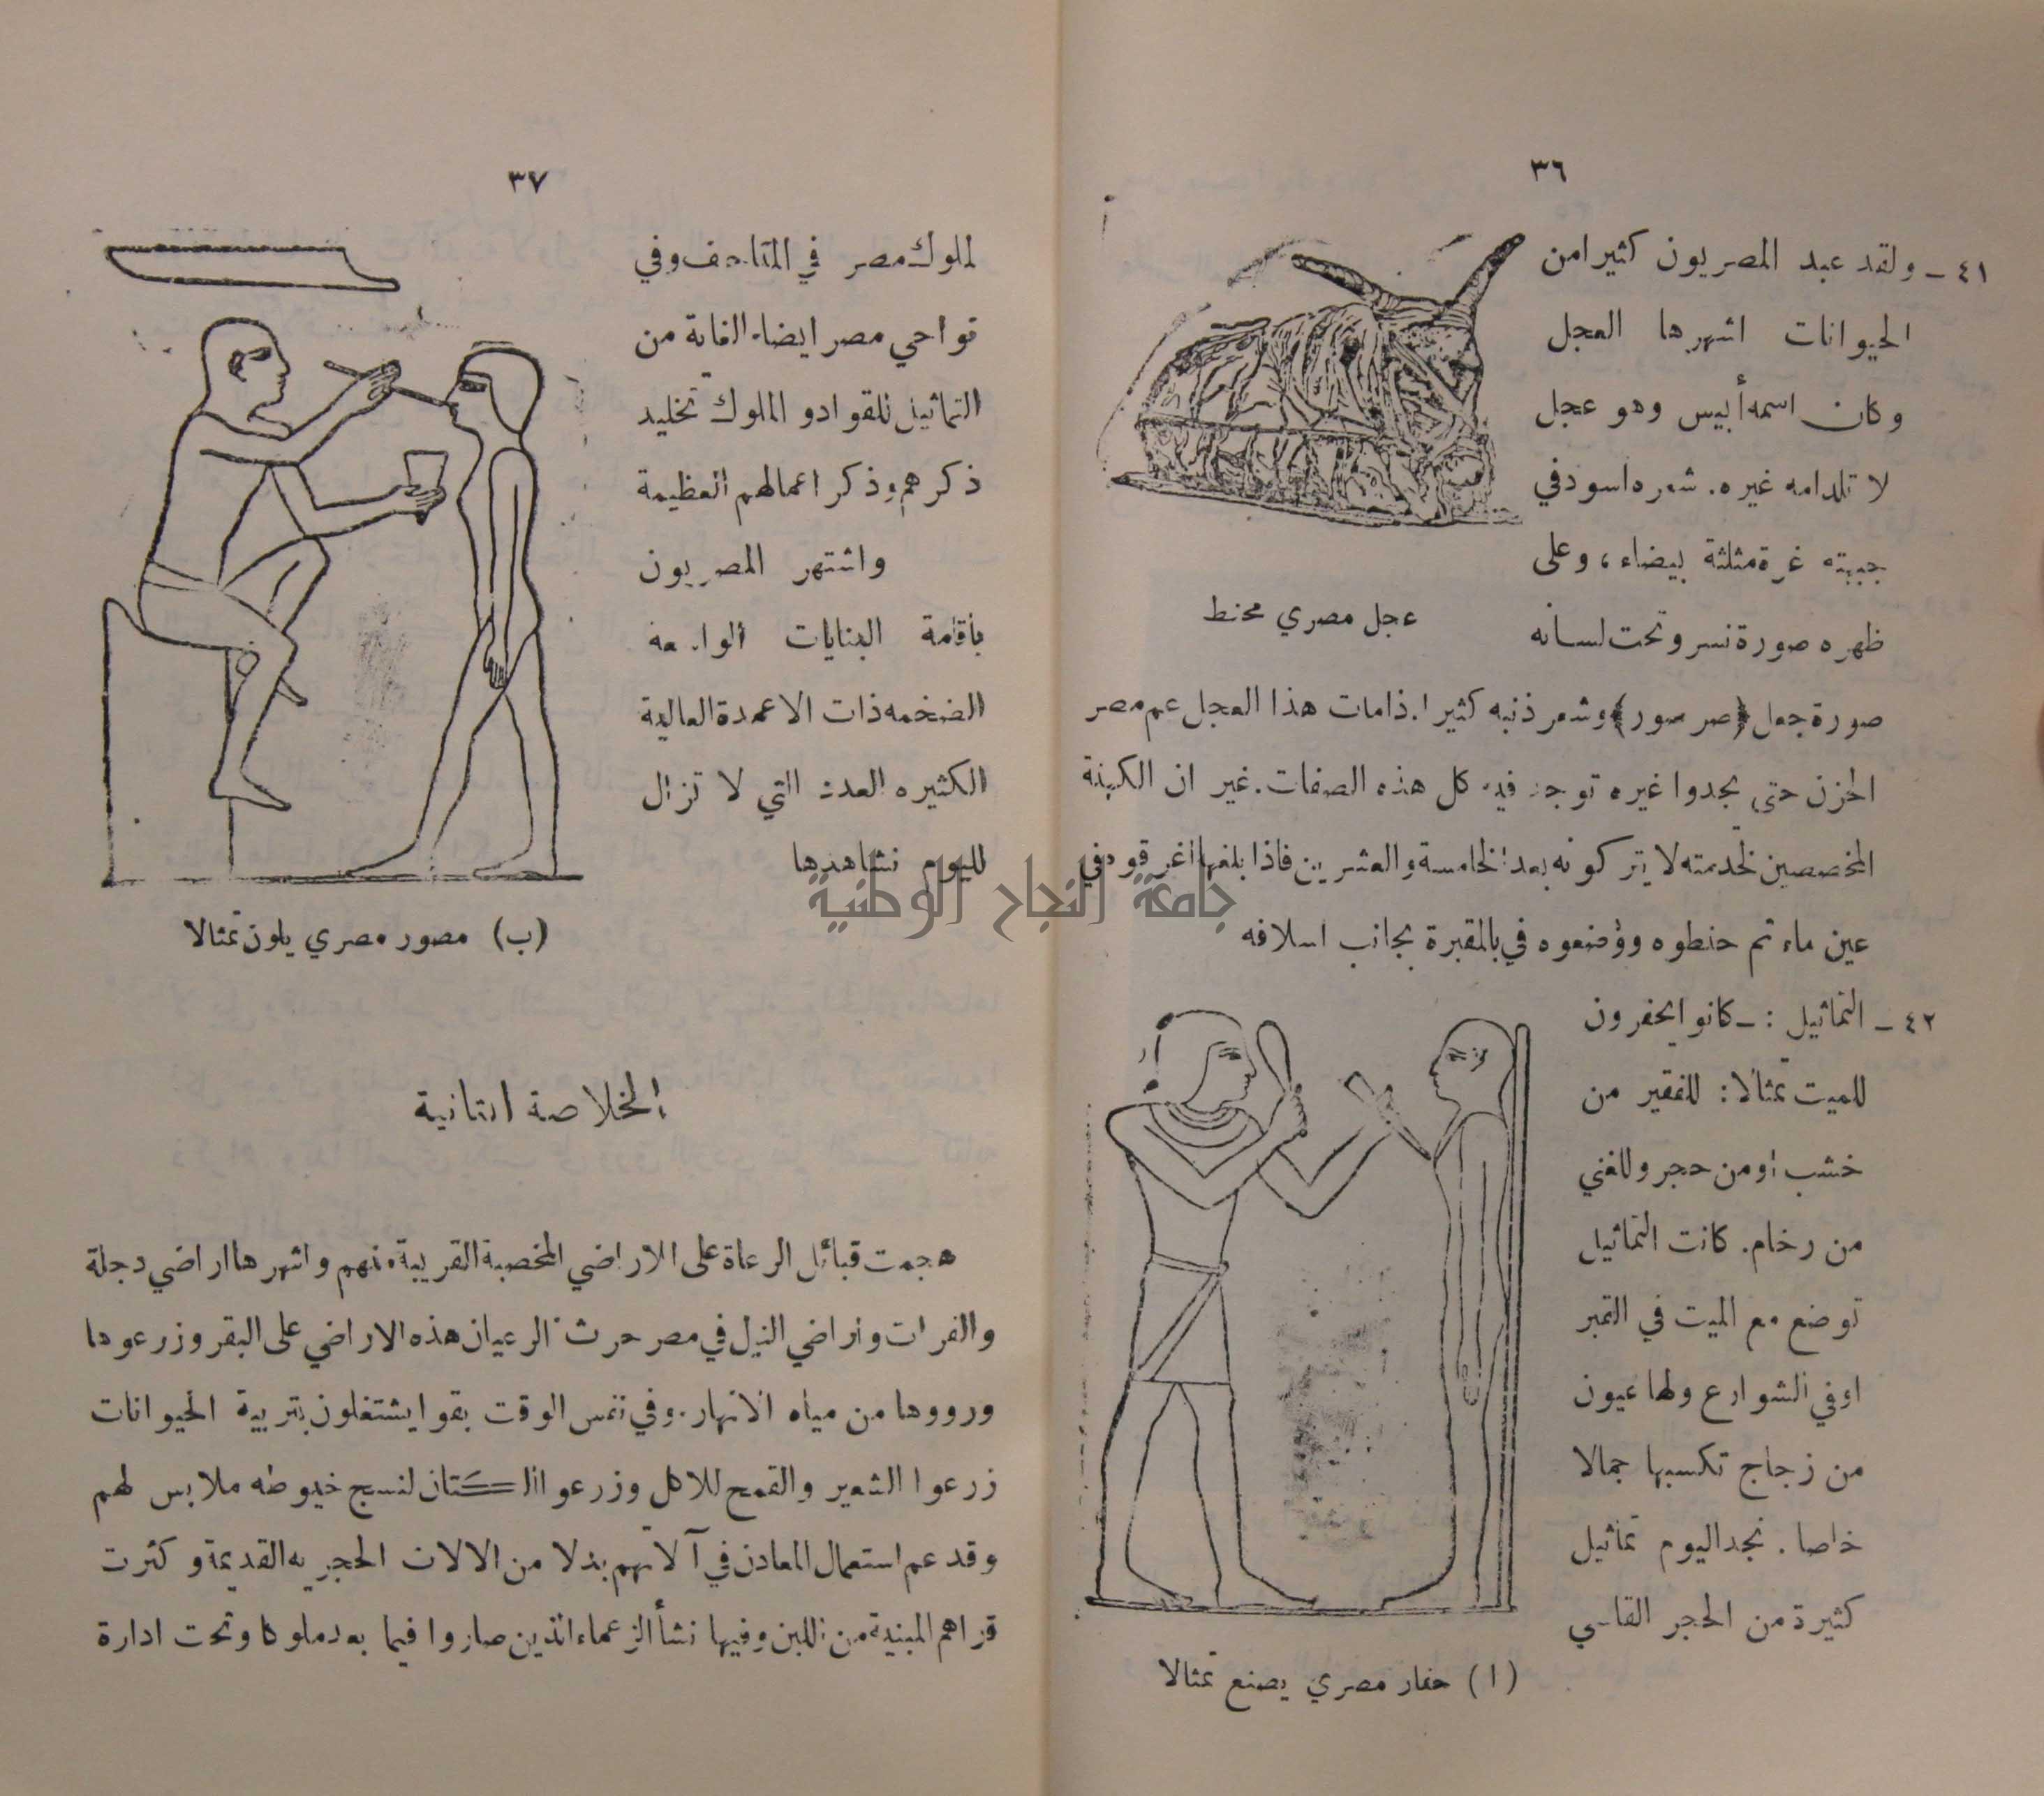 ٣٦
٤١ ـ ولقد عبد المصريون كثيرا من
الحيوانات اشهرها العجل
وكان اسمه أبيس وهو عجل
لا تلد امه غيره. شعره اسود في
جبهته غرة مثلثة بيضاء، وعلى
ظهره صورة نسر وتحت لسانه
عجل مصري محنط
صورة جعل (صرصور) وشعر ذنبه كثير اذا مات هذا العجل عم مصر
الحزن حتى يجدوا غيره توجد فيه كل هذه الصفات. غير ان الكهنة
المخصصين لخدمته لا يتركونه بعد الخامسة والعشرين فاذا بلغها اغرقوه في
عين ماء ثم حنطوه ووضعوه في بالمقبرة بجانب اسلافه
٤٢ ـ التماثيل : ـ كانوا يحفرون
للميت تمثالا : للفقير من
خشب او من حجر وللغني
من رخام. كانت التماثيل
توضع مع الميت في القبر
او في الشوارع ولها عيون
من زجاج تكسبها جمالا
خاصا. نجد اليوم تماثيل
كثيرة من الحجر القاسي
(ا) حفار مصري يصنع تمثالا
٣٧
لملوك مصر في المتاحف وفي
نواحي مصر ايضا. الغاية من
التماثيل للقواد والملوك تخليد
ذكرهم وذكر اعمالهم العظيمة
واشتهر المصريون
بأقامة البنايات الواسعة
الضخمه ذات الاعمدة العالية
الكثيره العدد التي لا تزال
لليوم نشاهدها
(ب) مصور مصري يلون تمثالا
الخلاصة الثانية
هجمت قبائل الرعاة على الاراضي المخصبة القريبة منهم واشهرها اراضي دجلة
والفرات واراضي النيل في مصر حرث الرعيان هذه الاراضي على البقر وزرعوها
ورووها من مياه الانهار. وفي نفس الوقت بقوا يشتغلون بتربية الحيوانات
زرعوا الشعير والقمح للاكل وزرعوا الكتان لنسج خيوطه ملابس لهم
وقد عم استعمال المعادن في آلاتهم بدلا من الالات الحجريه القديمة وكثرت
قراهم المبنية من اللبن وفيها نشأ الزعماء الذين صاروا فيما بعد ملوكا وتحت ادارة
جامعة النجاح الوطنية